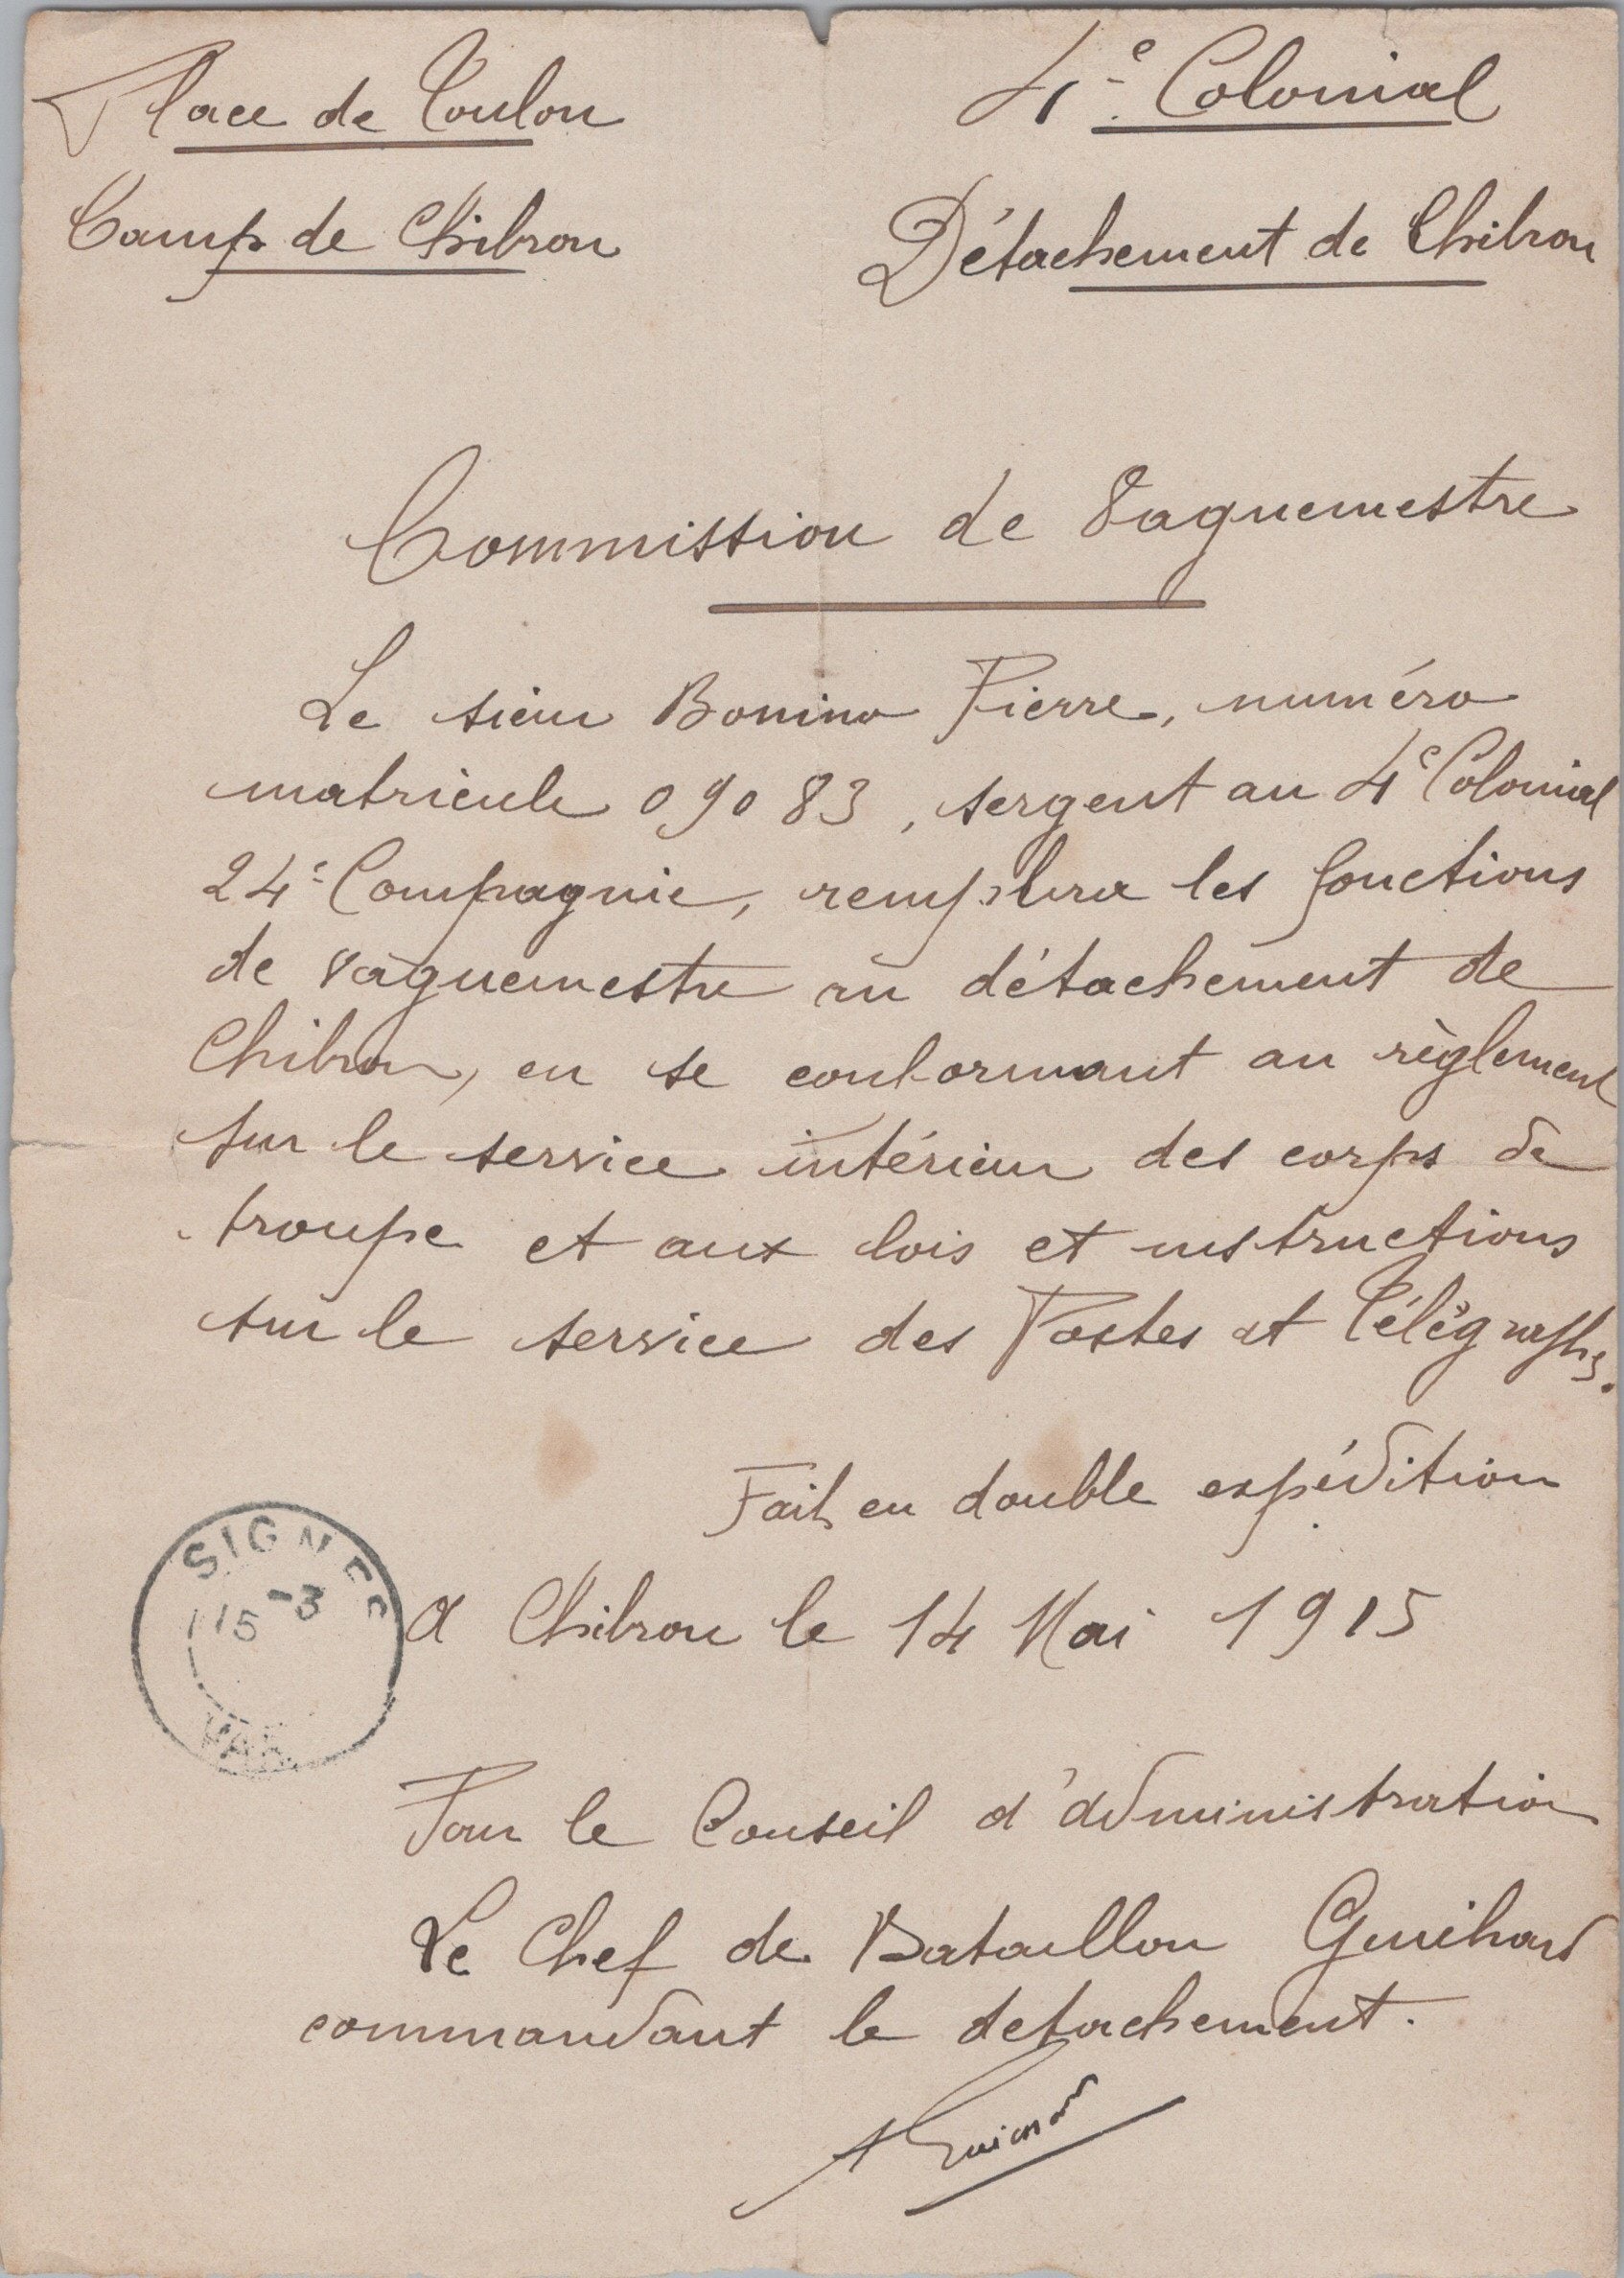 Place de Toulon
4e Colonial
Camp de Chibron
Détachement de Chibron
Commission de Vaguemestre
Le sieur Bonino Pierre, numéro
matricule 09083, sergent au 4e Colonial
24e Compagnie, remplira les fonctions
de vaguemestre au détachement de
Chibron, en se conformant au règlement
sur le service intérieur des corps de
troupe et aux lois et instructions
sur le service des Postes et Télégraphes.
Fait en double expédition
SIGNES
15 -3
VAR
A Chibron le 14 Mai 1915
Pour le Conseil d'administration
Le Chef de Bataillon Guihard
commandant le detachement.